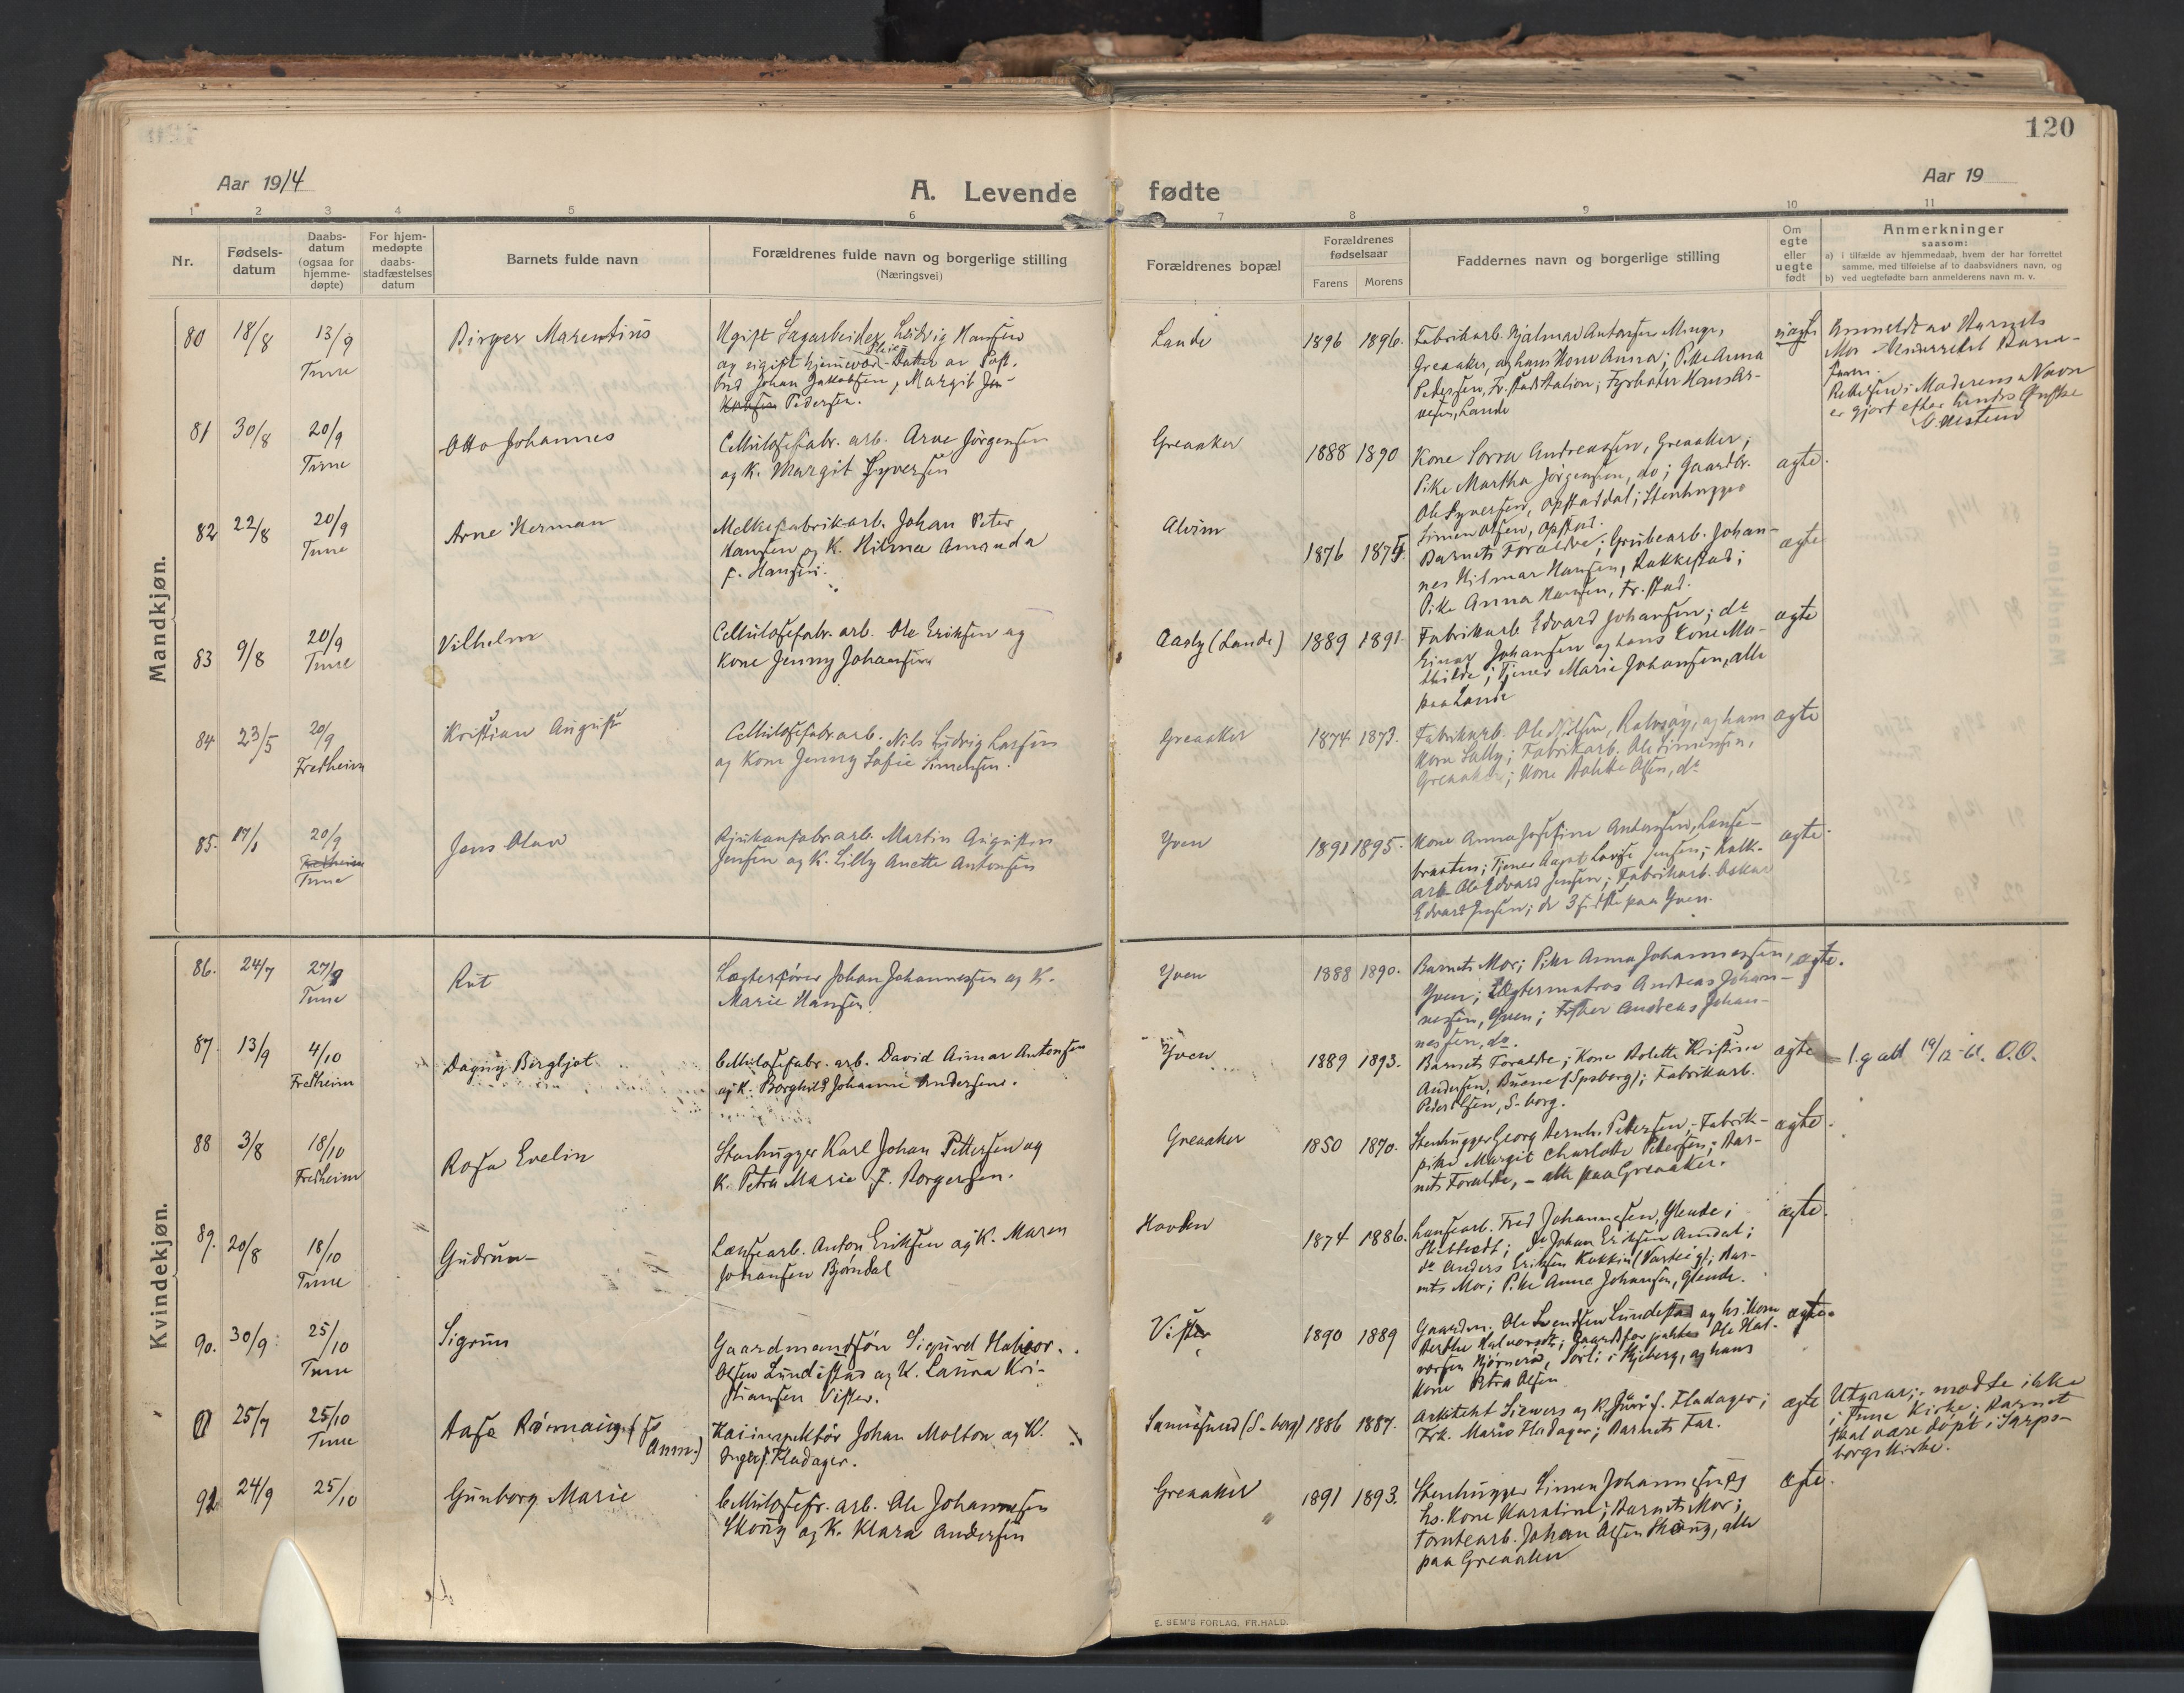 120
Aar 1914
A. Levende fødte
Aar 19
1 2 3 4 5 6 7 8 9 10 11
Nr.
Fødsels-
datum
Daabs-
datum
(ogsaa for
hjemme-
døpte)
For hjem-
medøpte
daabs-
stadfæstelses
datum
Barnets fulde navn
Forældrenes fulde navn og borgerlige stilling
(Næringsvei)
Forældrenes bopæl
Forældrenes
fødselsaar
Farens Morens
Faddernes navn og borgerlige stilling
Om
egte
eller
uegte
født
Anmerkninger
saasom:
a) i tilfælde av hjemmedaab, hvem der har forrettet
samme, med tilføielse af to daabsvidners navn, og
b) ved uegtefødte barn anmelderens navn m. v.
Mandkjøn.
80 18/8 13/9
Tune
Birger Marentius
Ugift Sagarbeider Ludvig Hansen
og ugift hjemmevær. Datter av Post-
bud Johan Jakobsen, Margit
Pedersen.
Lande
1896 1896.
Fabrikarb. Hjalmar Antonsen Minge,
Greaaker, og hans Kone Anna; Pike Anna
Pedersen, Fr.stad Station; Fyrbøter Hans Ar-
nesen, Lande
uægte
Anmeldt av Barnets
Mor
Rettelsen i Moderens Navn
er gjort efter hendes Ønske
81 30/8 20/9
Tune
Otto Johannes
Cellulosefabr. arb. Arve Jörgensen
og K. Margit Syversen
Greaaker
1888 1890
Kone Lovra Andreassen, Greaaker;
Pike Martha Jörgensen, do; Gaardbr.
Ole Syversen, Opstaddal; Stenhugger
Simen Olsen, Opstad.
ægte.
82 22/8 20/9
Tune
Arne Herman
Melkefabrikarb. Johan Peter
Hansen og K. Hilma Amanda
f. Hansen.
Alvim
1876 1875.
Barnets Forældre; Grubearb. Johan-
nes Hilmar Hansen, Rakkestad;
Pike Anna Hansen, Fr.stad.
ægte
83 9/8 20/9
Tune
Vilhelm
Cellulosefabr. arb. Ole Eriksen og
Kone Jenny Johansen
Aasly (Lande)
1889 1891.
Fabrikarb. Edvard Johansen; do
Einar Johansen og hans Kone Ma-
thilde; Tjener Marie Johansen, alle
paa Lande
ægte
84 23/5 20/9
Fredheim
Kristian August
Cellulosefabr. arb. Nils Ludvig Larsen
og Kone Jenny Sofie Simensen.
Greaaker
1874 1873.
Fabrikarb. Ole Nilsen, Rolvsöy, og hans
Kone Sally; Fabrikarb. Ole Simensen,
Greaaker; Kone Bolette Olsen, do
ægte
85. 17/1 20/9
Fredheim
Tune
Jens Olav
Rjukanfabr. arb. Martin Augustin
Jensen og K. Lilly Anette Antonsen
Yven
1891 1895.
Kone Anna Josefine Antonsen, Lande-
braaten; Tjener Aagot Lovise Jensen; Kalk-
arb. Ole Edvard Jensen; Fabrikarb. Oskar
Edvard Jensen; de 3 sidste paa Yven.
ægte.
Kvindekjøn.
86. 24/7 27/9
Tune
Rut
Lægterförer Johan Johannessen og K.
Marie Hansen
Yven
1888 1890.
Barnets Mor; Pike Anna Johannessen,
Yven; Lægtermatros Andreas Johan-
nessen, Yven; Fisker Andreas Johan-
nessen, do.
ægte.
87. 13/9 4/10
Fredheim
Dagny Bergljot
Cellulosefabr. arb. David Aimar Antonsen
og K. Borghild Johanne Andersen.
Yven
1889 1893.
Barnets Forældre; Kone Bolette Kristine
Andersen, Buene (Spsborg); Fabrikarb.
Peder Olsen, S-borg.
ægte
l.g att 19/12-61. O.O.
88 3/8 18/10
Fredheim
Rosa Evelin
Stenhugger Karl Johan Pettersen og
K. Petra Marie f. Borgersen.
Greaaker
1850 1870.
Stenhugger Georg Bernh. Pettersen, Fabrik-
pike Margit Charlotte Petersen; Bar-
nets Forældre, - alle paa Greaaker.
ægte.
89. 20/8 18/10
Tune
Gudrun
Landsearb. Anton Eriksen og K. Maren
Johansen Bjørndal
Hovden
1874 1886.
Landsearb. Fred Johannesen, Glende;
do Johan Eriksen Amdal;
do Anders Eriksen Kokkin (Varteig); Bar-
nets Mor; Pike Anna Johansen, Glende.
ægte.
90. 30/9 25/10
Tune
Sigrun
Gaardmandsön Sigurd Halvor
Olsen Lundestad og K. Laura Kri-
stiansen Vister.
Vister
1890 1889
Gaardm. Ole Svendsen Lundestad og hs. Kone
Berthe Halvorsdt; Gaardsforpakter Ole Hal-
vorsen Bjørnerød, Sörli i Skjeberg, og hans
Kone Petra Olsen
ægte.
91 25/7 25/10
Tune
Aase Römaing (se
Anm.)
Havneinspektör Johan Molton og K.
Inga f. Fladager.
Sannesund (S-borg)
1886 1887.
Arkitekt Siewers og K. Juvi f. Fladager;
Frk. Marie Fladager; Barnets Far.
ægte
Utgaar; mødte ikke
i Tune Kirke; Barnet
skal være døpt i Sarps-
borgs Kirke.
92. 24/9 25/10
Gunborg Marie
Cellulosefr. arb. Ole Johannesen
Skoug og K. Klara Andersen
Greaaker
1891 1893.
Stenhugger Simen Johannesen og
hs. Kone Karoline; Barnets Mor;
Tomtearb. Johan Olsen Skoug, alle
paa Greaaker
ægte.
E. SEM'S FORLAG, FR.HALD.